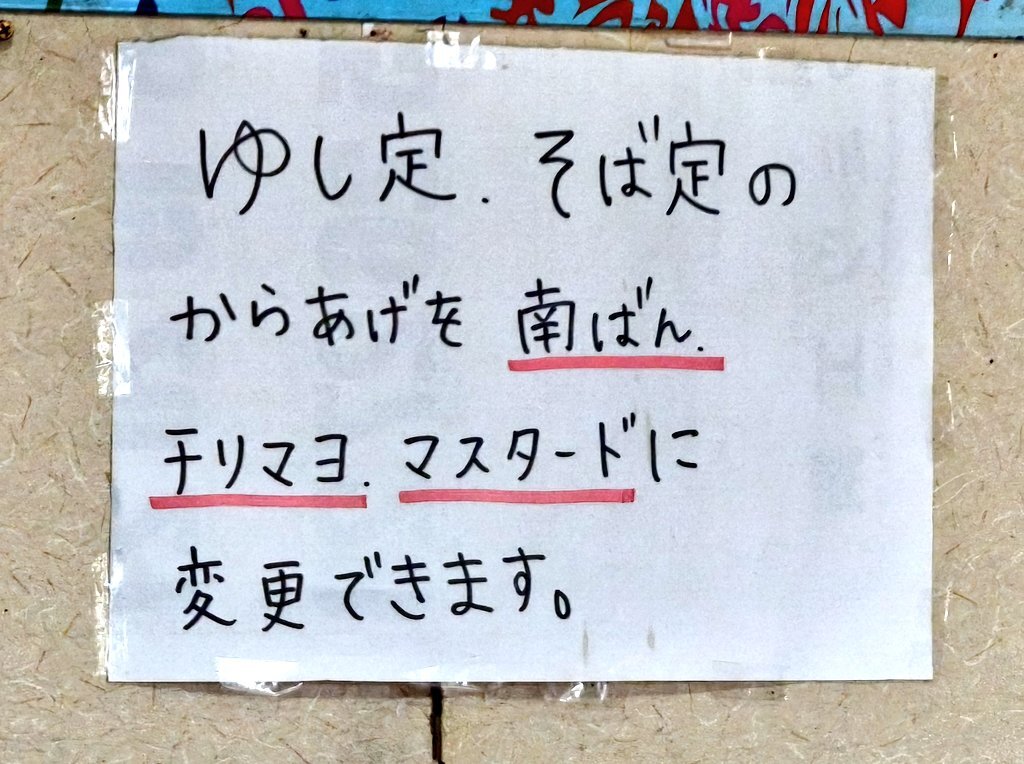 ゆし定.そば定の
からあげを 南ばん.
チリマヨ.マスタードに
変更できます。